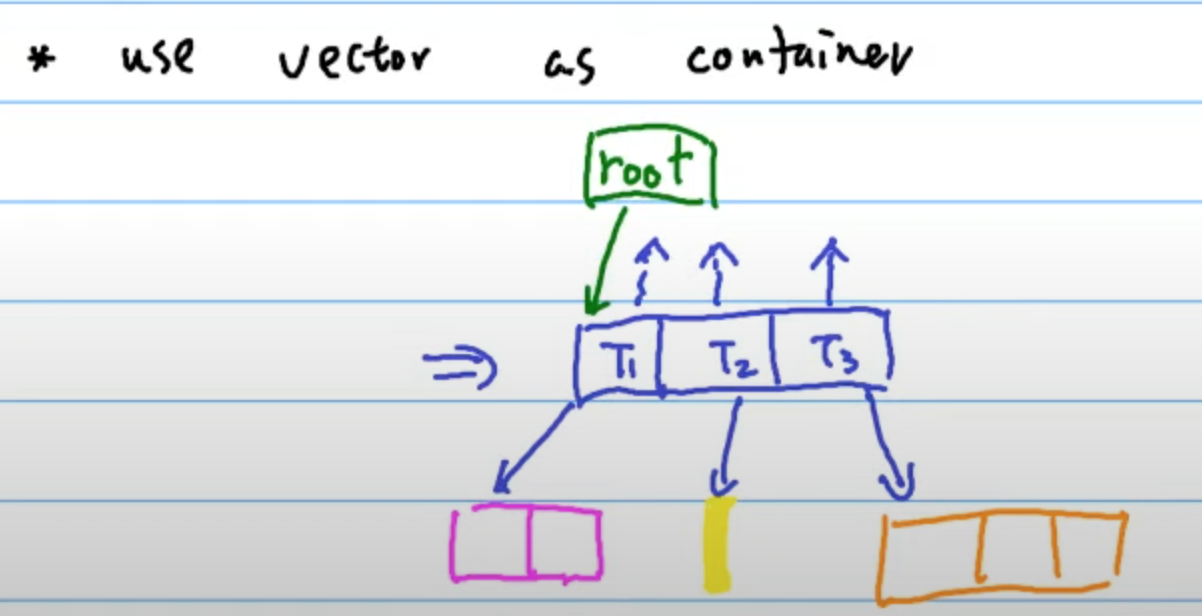 * use vector as container
root
T1 T2 T3